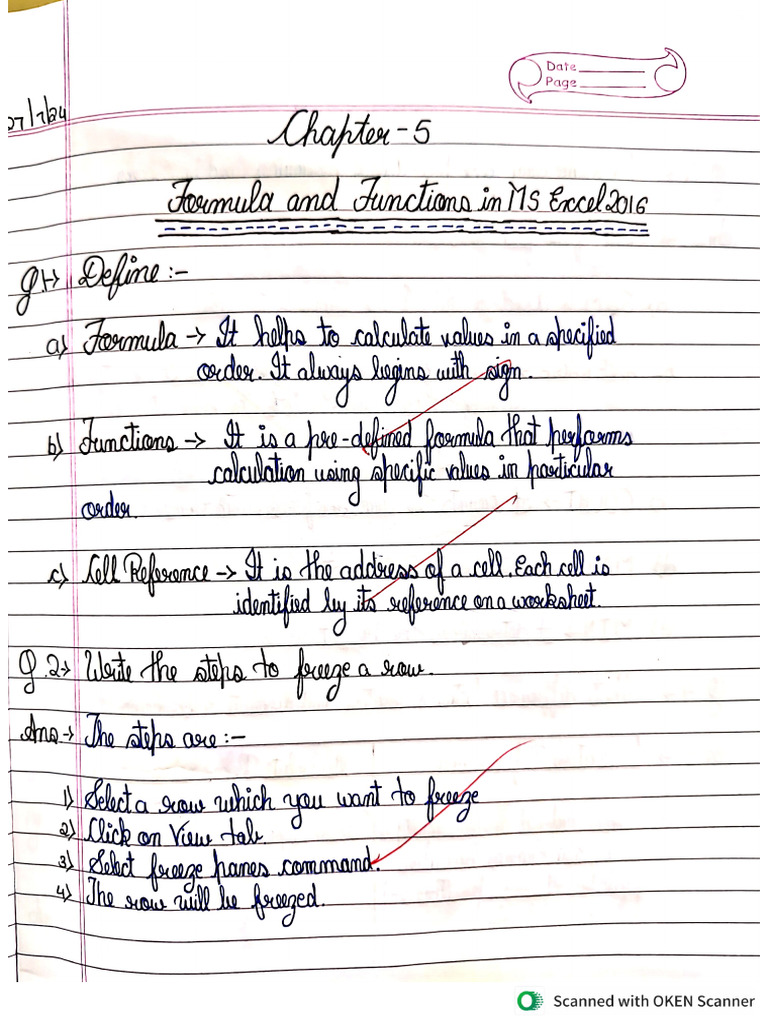 Date
Page
27/7/24
Chapter - 5
Formula and Functions in MS Excel 2016
Q1→ Define :-
a) Formula → It helps to calculate values in a specified
order. It always begins with sign.
b) Functions → It is a pre-defined formula that performs
calculation using specific values in particular
order.
c) Cell Reference → It is the address of a cell. Each cell is
identified by its reference on a worksheet.
Q.2→ Write the steps to freeze a row.
Ans → The steps are :-
1) Select a row which you want to freeze
2) Click on View tab.
3) Select freeze panes command.
4) The row will be freezed.
Scanned with OKEN Scanner